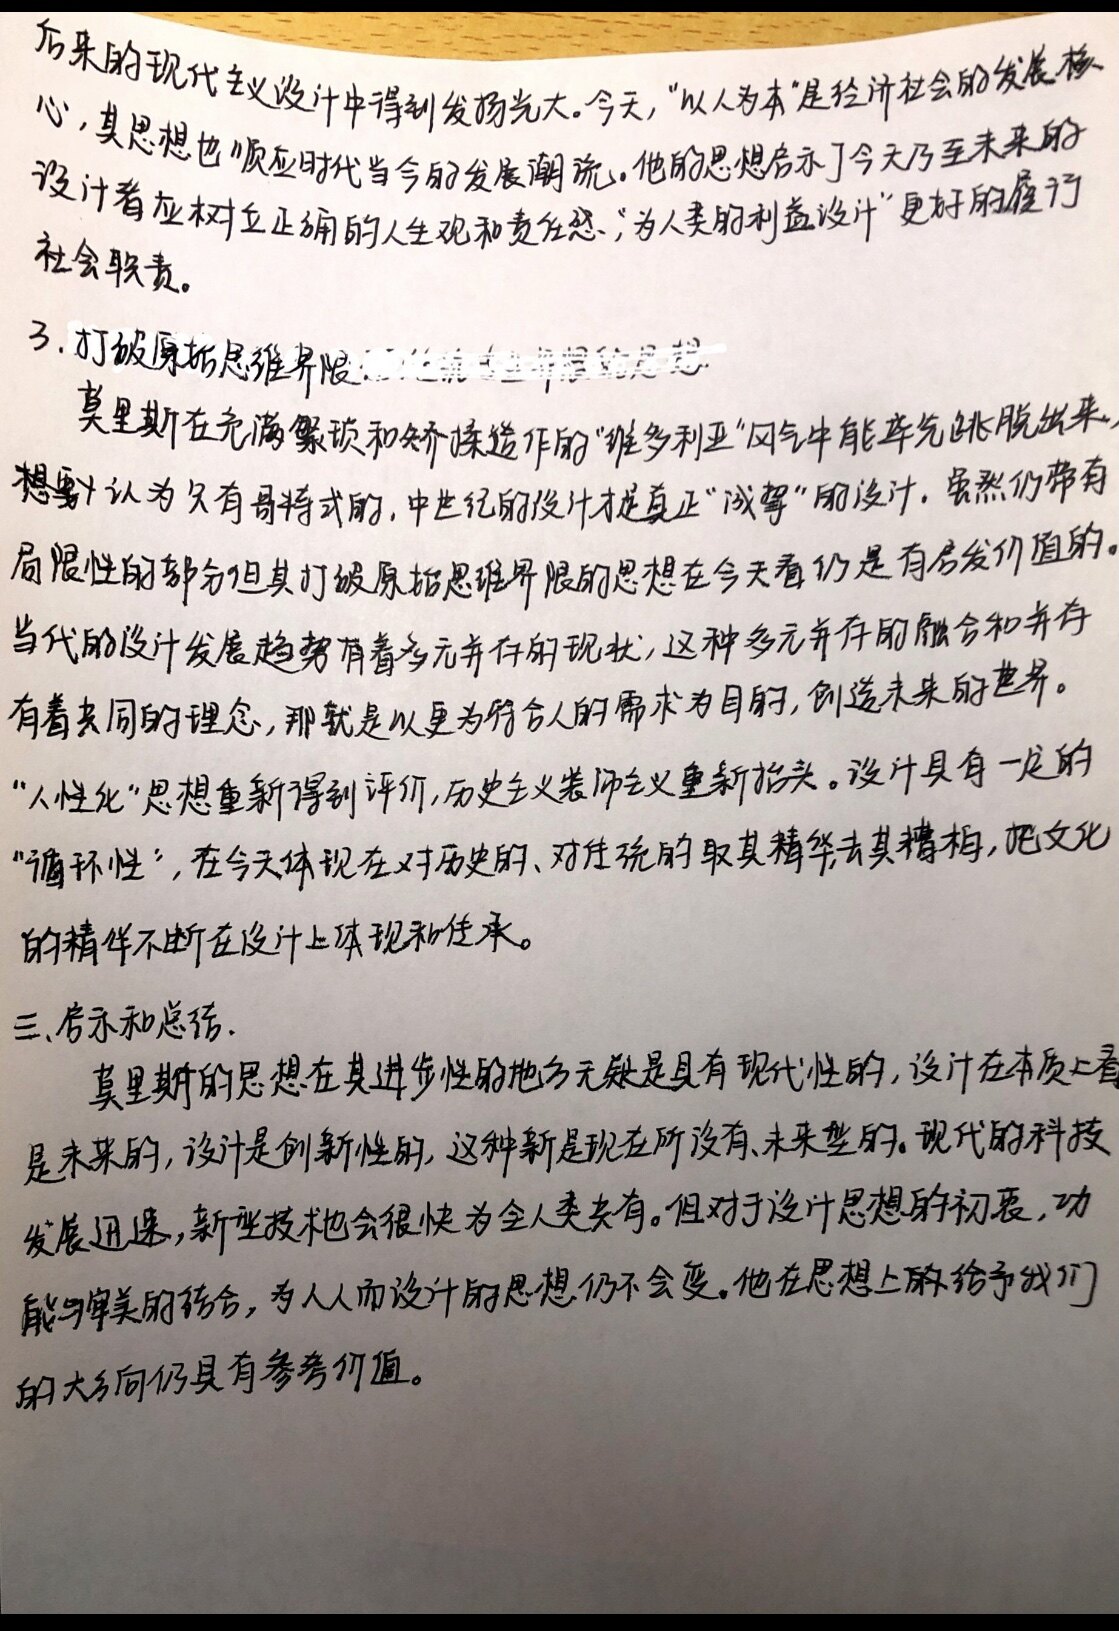 后来的现代主义设计中得到发扬光大。今天，“以人为本”是经济社会的发展核
心，其思想也顺应时代当今的发展潮流。他的思想启示了今天乃至未来的
设计者应树立正确的人生观和责任感，“为人类的利益设计”更好的履行
社会职责。
3.打破原始思维界限
莫里斯在充满繁琐和矫揉造作的“维多利亚”风气中能率先跳脱出来，
认为只有哥特式的，中世纪的设计才是真正“诚挚”的设计。虽然仍带有
局限性的部分但其打破原始思维界限的思想在今天看仍是有启发价值的。
当代的设计发展趋势有着多元并存的现状，这种多元并存的融合和并存
有着共同的理念，那就是以更为符合人的需求为目的，创造未来的世界。
“人性化”思想重新得到评价，历史主义装饰主义重新抬头。设计具有一定的
“循环性”，在今天体现在对历史的、对传统的取其精华去其糟粕，把文化
的精华不断在设计上体现和传承。
三、启示和总结.
莫里斯的思想在其进步性的地方无疑是具有现代性的，设计在本质上看
是未来的，设计是创新性的，这种新是现在所没有、未来型的。现代的科技
发展迅速，新型技术也会很快为全人类共有。但对于设计思想的初衷，功
能与审美的结合，为人人而设计的思想仍不会变。他在思想上给予我们
的大方向仍具有参考价值。